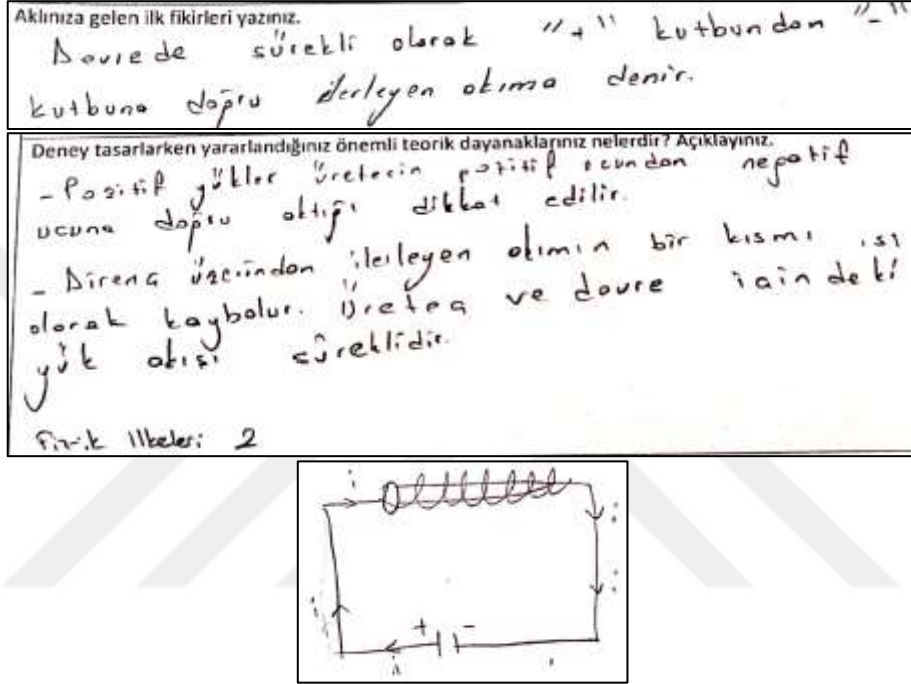 Aklınıza gelen ilk fikirleri yazınız.
Devrede sürekli olarak "+" kutbundan "-"
kutbuna doğru ilerleyen akıma denir.
Deney tasarlarken yararlandığınız önemli teorik dayanaklarınız nelerdir? Açıklayınız.
- Pozitif yükler üretecin pozitif ucundan negatif
ucuna doğru aktığı dikkat edilir.
- Direnç üzerinden ilerleyen akımın bir kısmı ısı
olarak kaybolur. Üreteç ve devre içindeki
yük akışı süreklidir.
Fizik İlkeleri 2
i
i
i
i
+ -
i